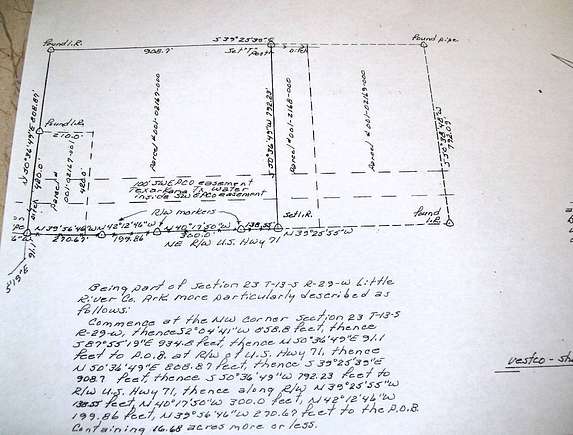 S 39°25'39"E
found I.R.
908.7'
Set "T" Post
ditch
found pipe
N 50°36'49"E 808.87'
Parcel #001-02167-000
S 50°36'49"W 792.23'
Parcel #001-2168-000
Parcel #001-02169-000
found I.R.
210.0'
Parcel #
001-02167-001
420.0'
ditch 420.0'
100' SWEPCO easement
Texarkana Tx. water
inside SWEPCO easement
R/W markers
Set I.R.
found
I.R.
N 39°56'46"W
N 42°12'46"W
N 40°17'50"W
138.55'
N 39°25'55"W
270.67'
199.86'
300.0'
NE R/W U.S. Hwy 71
91.1'
Being part of Section 23 T-13-S R-29-W Little
River Co. Ark more particularly described as
follows:
Commence at the NW corner Section 23 T-13-S
R-29-W, thence S 2°04'41"W 058.8 feet, thence
S 87°55'19"E 934.8 feet, thence N 50°36'49"E 91.1
feet to P.O.B. at R/W of U.S. Hwy 71, thence
N 50°36'49"E 808.87 feet, thence S 39°25'39"E
908.7 feet, thence S 50°36'49"W 792.23 feet to
R/W U.S. Hwy 71, thence along R/W N 39°25'55"W
138.55 feet, N 40°17'50"W 300.0 feet, N 42°12'46"W
199.86 feet, N 39°56'46"W 270.67 feet to the P.O.B.
Containing 16.68 acres more or less.
vestco - sh